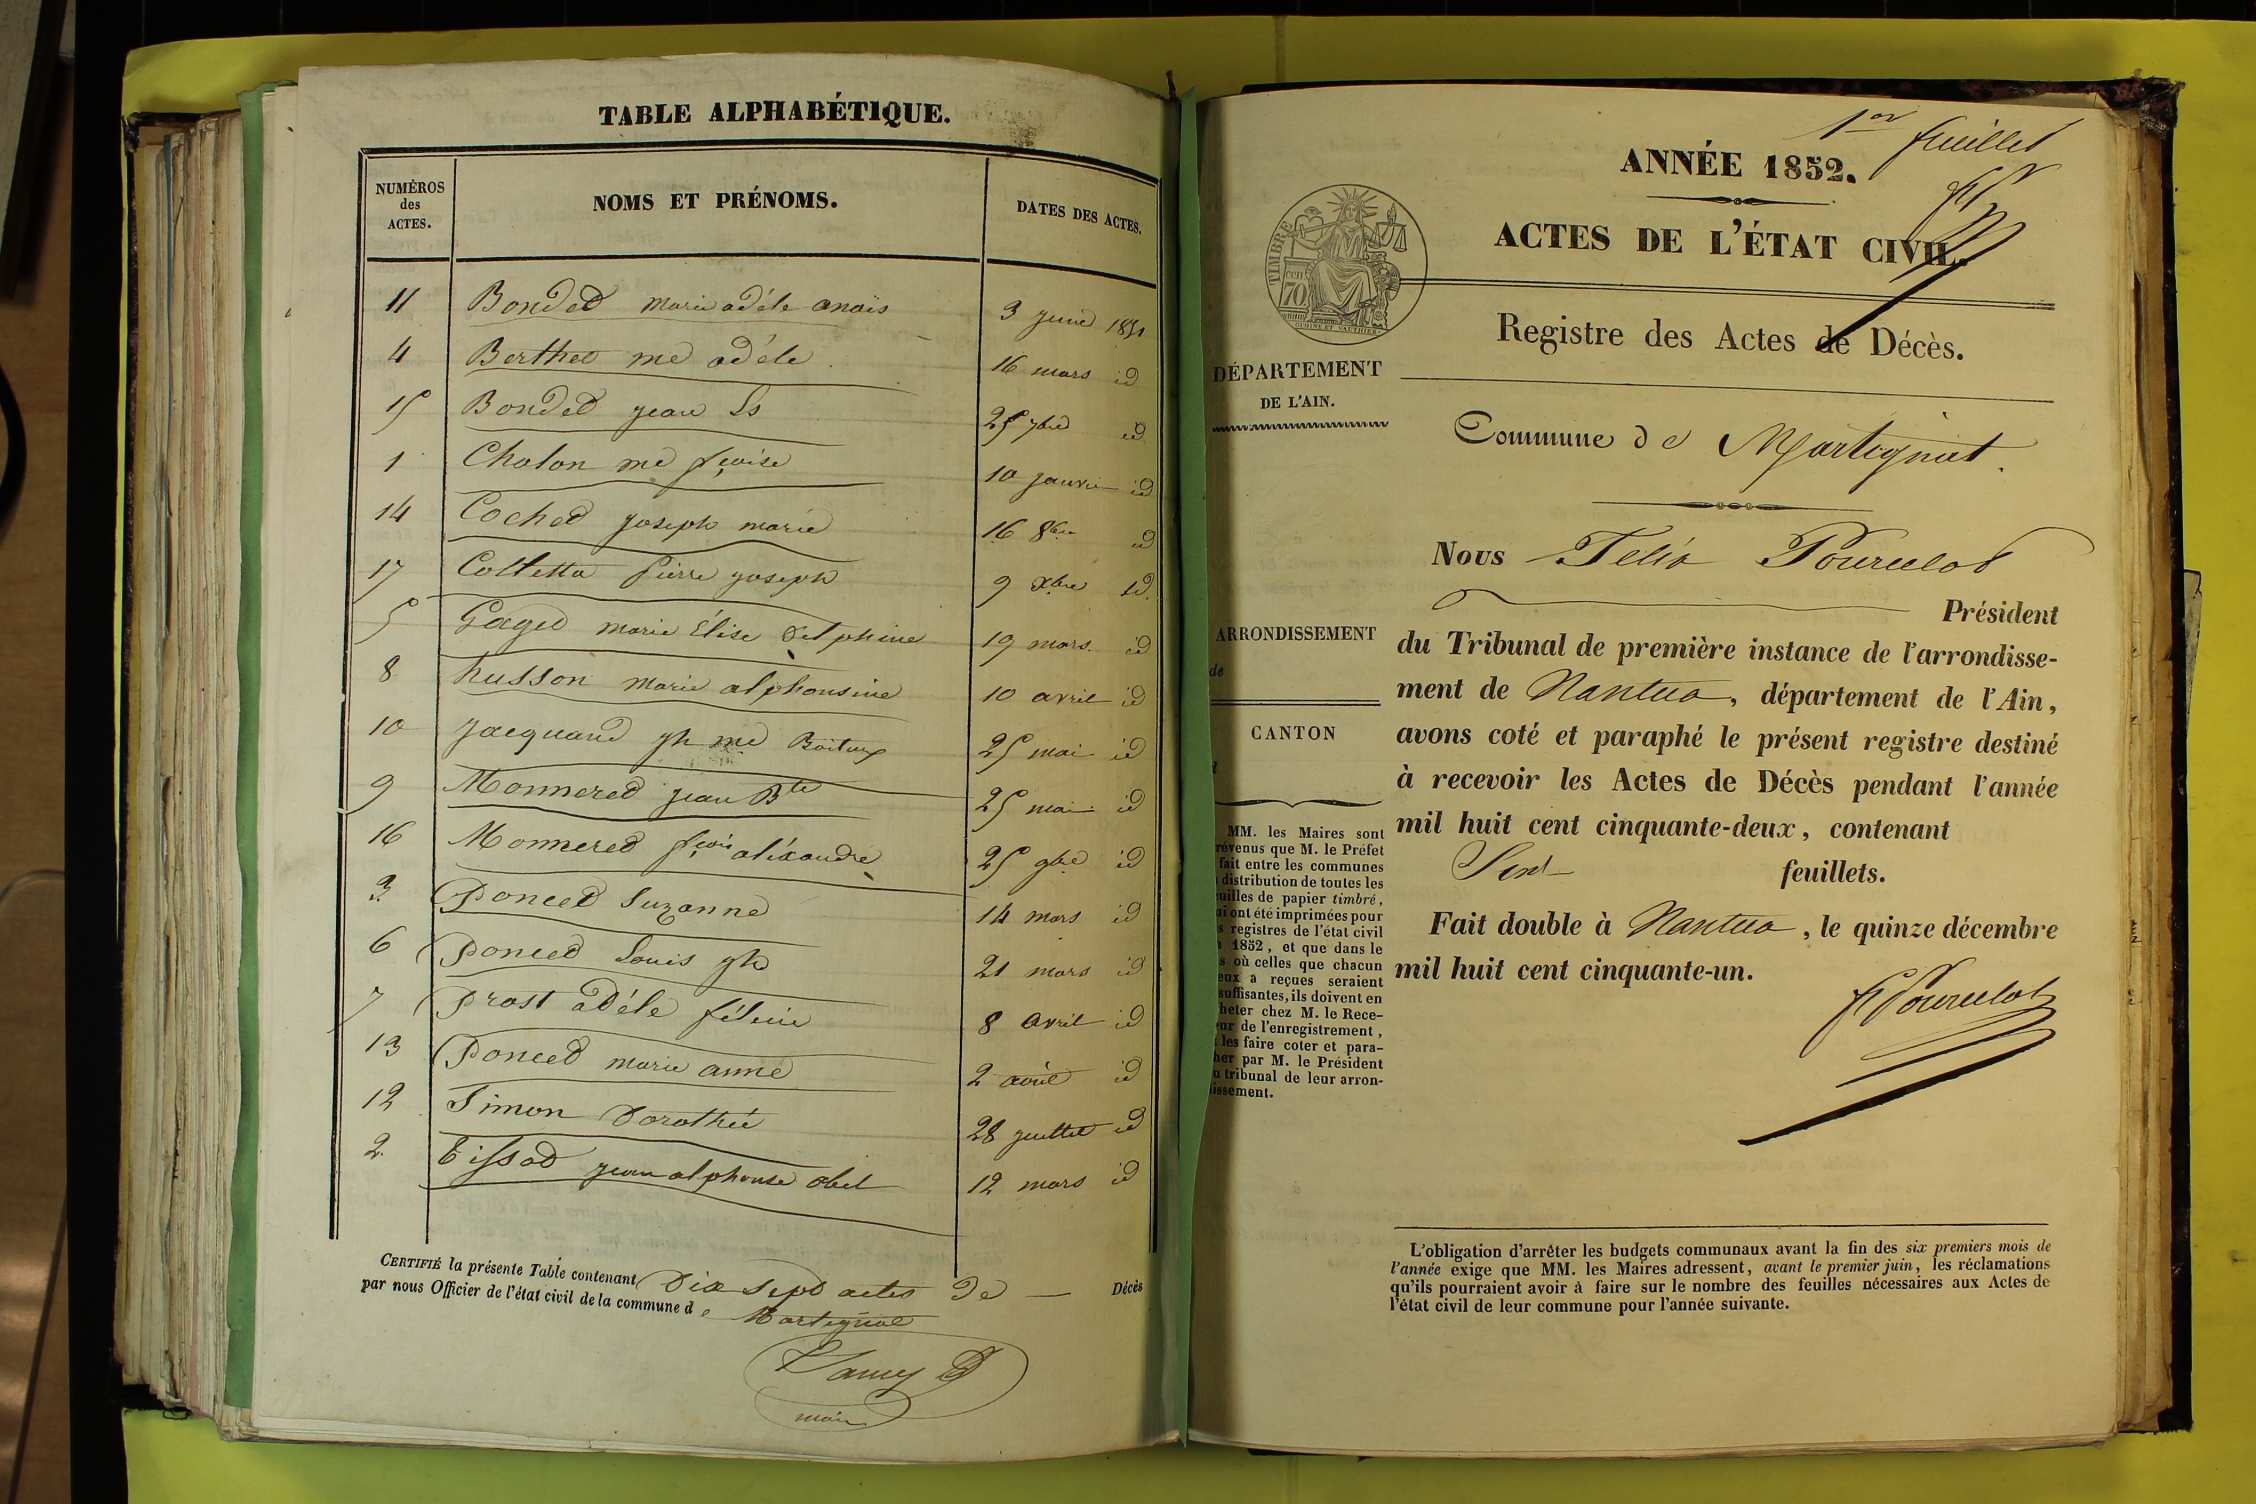 TABLE ALPHABÉTIQUE.
NUMÉROS
des
ACTES.
NOMS ET PRÉNOMS.
DATES DES ACTES.
11 Bondet marie adéle anaïs 3 juin 1851
4 Berthet me adéle 16 mars id
15 Bondet jean Ls 25 7bre id
1 Chalon me fçoise 10 janvier id
14 Cochet joseph marie 16 8bre id
17 Colletta pierre joseph 9 xbre id
5 Gaget marie Élise delphine 19 mars id
8 husson marie alphonsine 10 avril id
10 Jacquand jh me 25 mai id
9 Monneret jean Bte 25 mai id
16 Monneret fçois aléxandre 25 9bre id
3 Poncet Suzanne 14 mars id
6 Poncet Louis jh 21 mars id
7 Prost adéle félicie 8 avril id
13 Poncet marie anne 2 août id
12 Simon Dorothée 28 juillet id
2 Tissot jean alphonse abel 12 mars id
CERTIFIÉ la présente Table contenant Dix Sept actes de — Décès
par nous Officier de l'état civil de la commune de Martignat
maire
1er feuillet
ANNÉE 1852.
ACTES DE L'ÉTAT CIVIL.
TIMBRE
70
Registre des Actes de Décès.
DÉPARTEMENT
DE L'AIN.
Commune de Martignat.
Nous Félix Pourcelot
Président
ARRONDISSEMENT
de
du Tribunal de première instance de l'arrondisse-
ment de Nantua, département de l'Ain,
CANTON
avons coté et paraphé le présent registre destiné
à recevoir les Actes de Décès pendant l'année
mil huit cent cinquante-deux, contenant
Sept feuillets.
Fait double à Nantua, le quinze décembre
mil huit cent cinquante-un.
F Pourcelot
MM. les Maires sont
révenus que M. le Préfet
fait entre les communes
distribution de toutes les
uilles de papier timbré,
ui ont été imprimées pour
s registres de l'état civil
1852, et que dans le
s où celles que chacun
eux a reçues seraient
suffisantes, ils doivent en
heter chez M. le Rece-
eur de l'enregistrement,
les faire coter et para-
her par M. le Président
u tribunal de leur arron-
issement.
L'obligation d'arrêter les budgets communaux avant la fin des six premiers mois de
l'année exige que MM. les Maires adressent, avant le premier juin, les réclamations
qu'ils pourraient avoir à faire sur le nombre des feuilles nécessaires aux Actes de
l'état civil de leur commune pour l'année suivante.